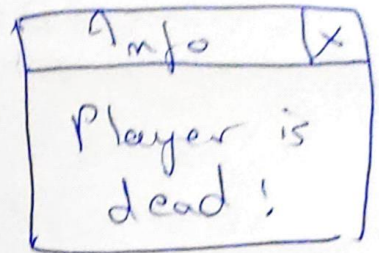 Info X
Player is
dead!